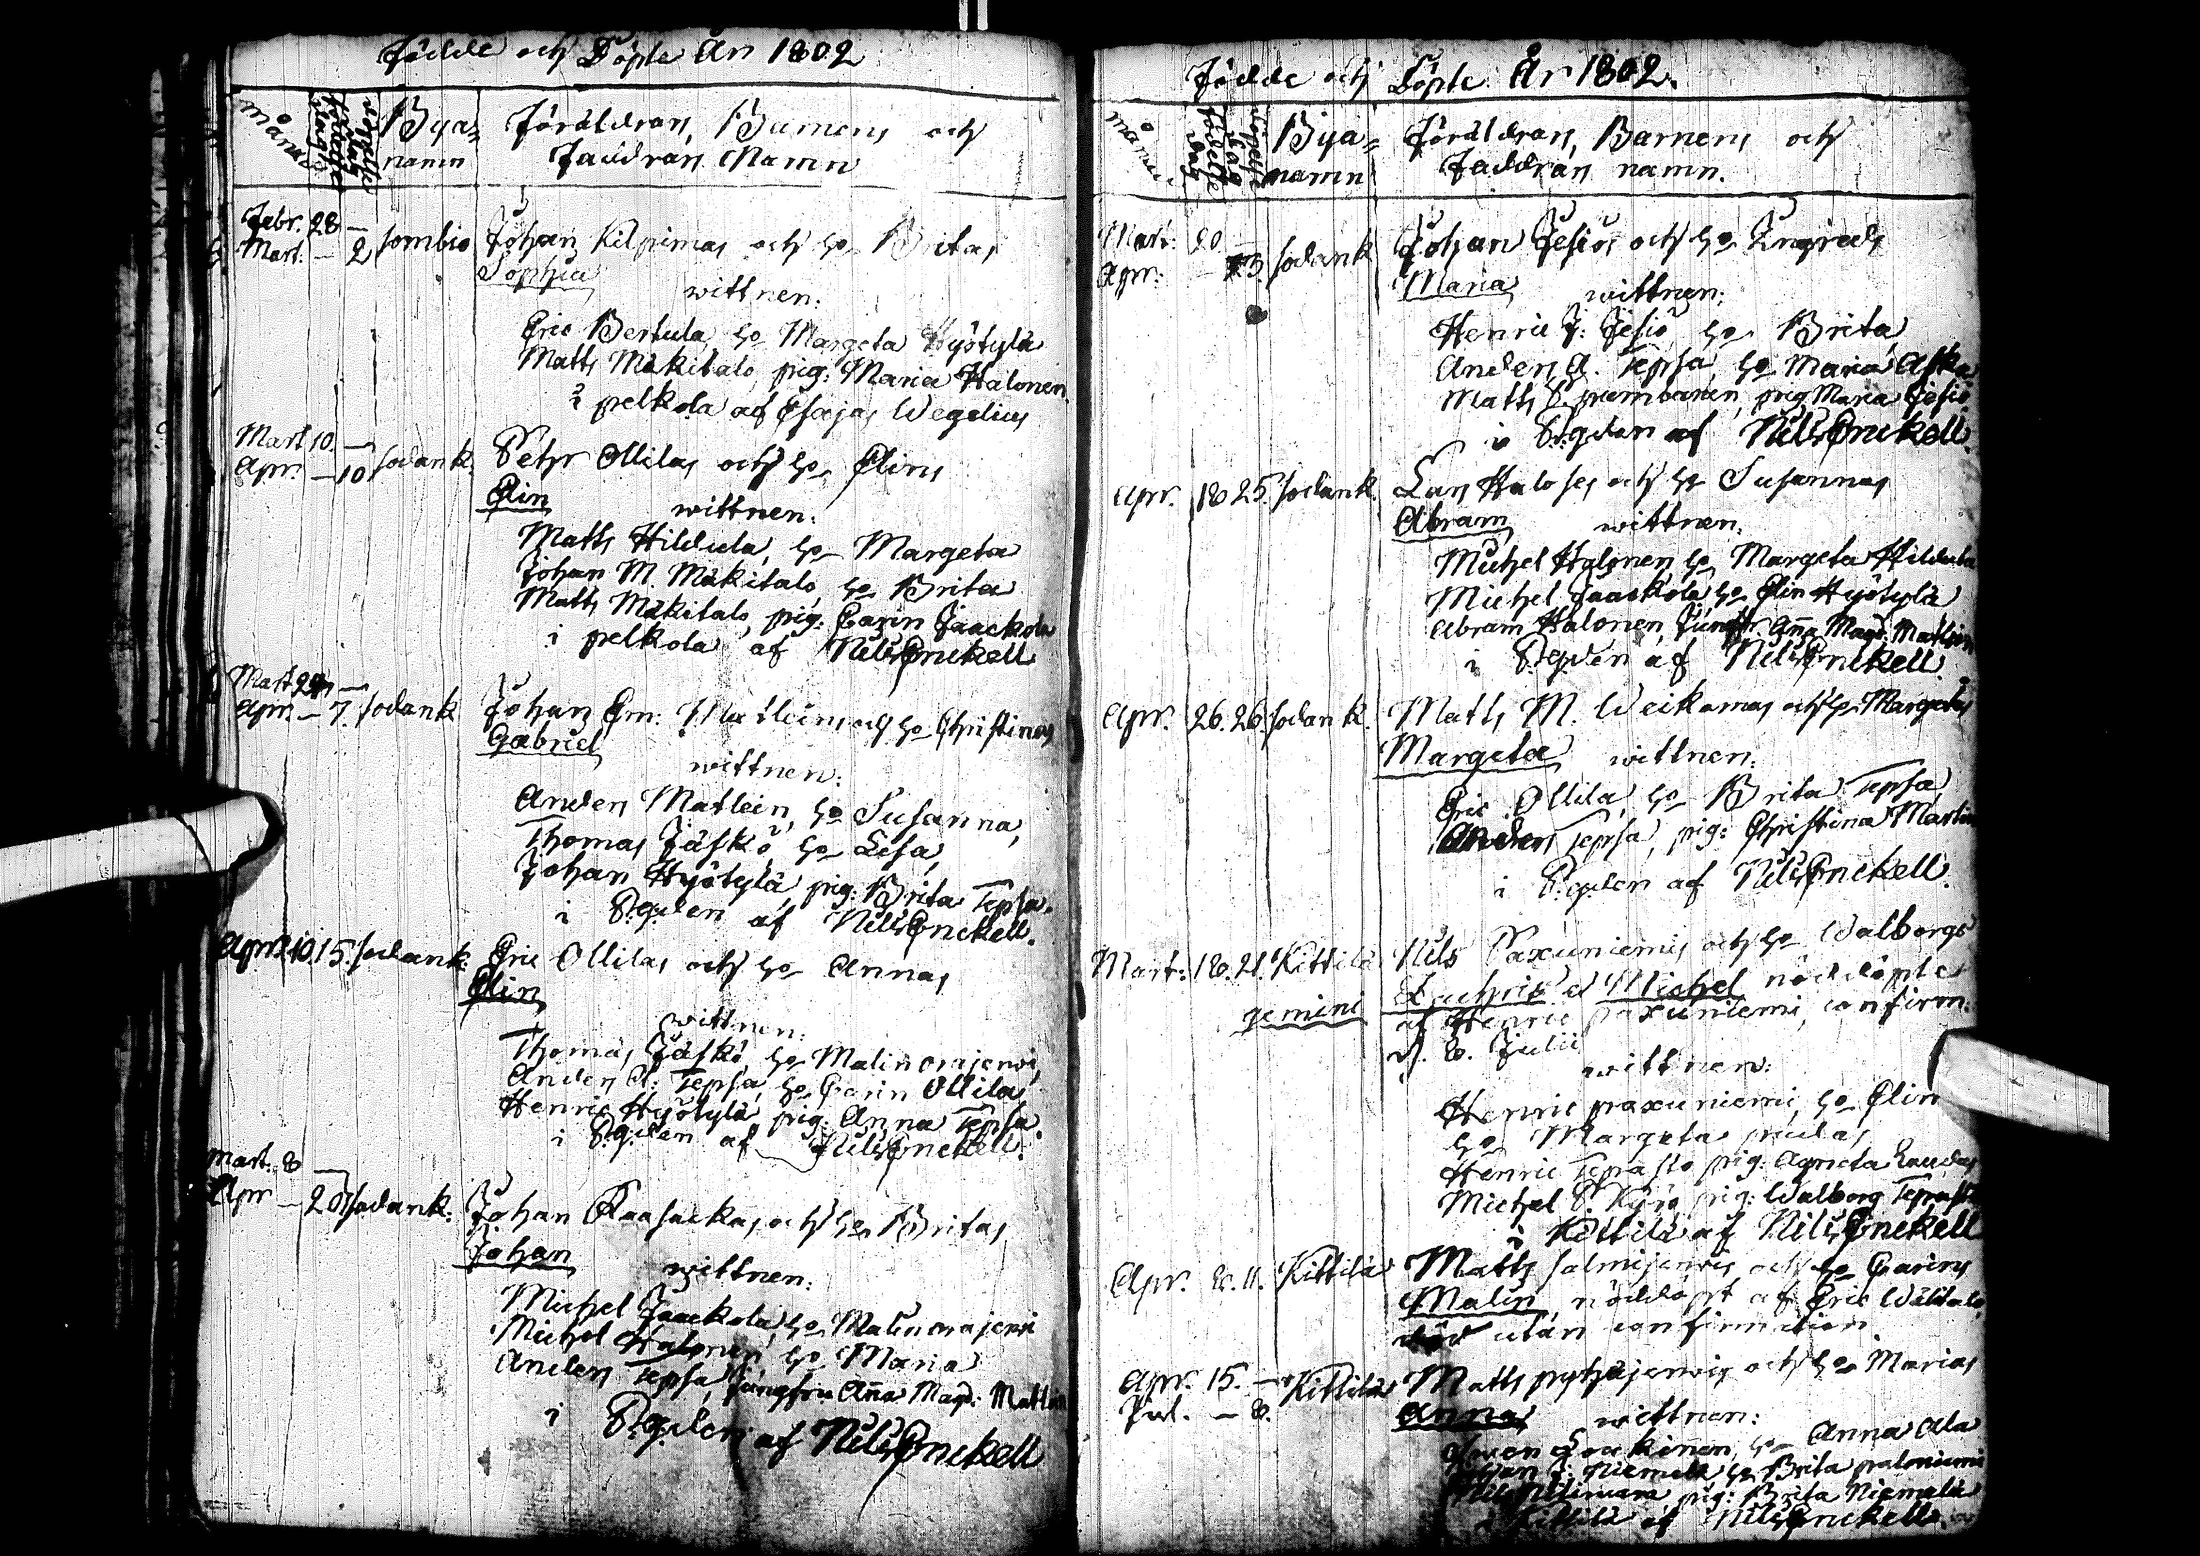 Födde och Döpte År 1802
månad
födelse dag
döpelse dag
Bya=
namn
Föräldrars, Barnens och
Faddrars Namn
Febr. 28 —
Mart. — 2 Sombio Johan Kilpimas och ho Britas
Sophia
wittnen:
Eric Bertula, ho Margeta Hyötylä
Matts Mäkitalo, pig: Maria Halonen
i pelkola af Esajas Wegelius
Mart 10. —
Apr. — 10 Sodank. Pehr Ollilas och ho Elins
Elin
wittnen:
Matts Hildula, ho Margeta
Johan M. Mäkitalo, ho Brita
Matts Mäkitalo, pig: Carin Jaackola
i pelkola af Nils Enckell
Mart —
Apr. — 7. Sodank Johan Em: Matleins och ho Christinas
Gabriel
wittnen:
Anders Matlein, ho Susanna,
Thomas Jäskö, ho Lisa,
Johan Hyötylä, pig: Brita Tepsa.
i P:gården af Nils Enckell.
Apr. 10. 15. Sodank. Eric Ollilas och ho Annas
Elin
wittnen:
Thomas Jäskö, ho Malin orajerwi,
Anders A: Tepsa, ho Carin Ollila
Henric Hyötylä pig: Anna Tepsa.
i P:gården af Nils Enckell.
Mart. 8 —
Apr — 20 Sodank. Johan och ho Britas
Johan
wittnen:
Michel Jaackola, ho Malin orajerwi
Michel Halonen, ho Maria
Anders Tepsa, Jungfru Anna Magd: Matlein
i P:gården af Nils Enckell
Födde och Döpte År 1802.
månad
födelse dag
döpelse dag
Bya=
namn
Föräldrars, Barnens och
Faddrars namn.
Mart: 20 —
Apr: — 3. Sodank Johan Jesiös och ho Ingrids
Maria wittnen:
Henric J: Jesiö, ho Brita
Anders A. Tepsa, ho Maria Aska
Matts P. pumbanen, pig Maria Jesiö
i P:gården af Nils Enckell.
Apr. 18 25. Sodank. Lars Haloses och ho Susannas
Abram wittnen.
Michel Halonen ho Margeta Hildula
Michel Jaackola ho Elin Hyötylä
Abram Halonen, Jungfr. Anna Magd: Matlein
i P:gården af Nils Enckell.
Apr. 26. 26. Sodank. Matts M. Weikamas och ho Margetas
Margeta wittnen:
Eric Ollila, ho Brita Tepsa,
Anders Tepsa, pig: Christina Martin
i P:gården af Nils Enckell.
Mart: 18. 21. Kittilä Nils Paxuniemis och ho Walborgs
gemini et Michel nöddöpte
af Henric paxuniemi, confirm.
d. 8. Julii
wittnen:
Henric paxuniemi, ho Elin
ho Margeta
Henric Tepasto pig: Agneta
Michel P. Kyrö pig: Walborg Tepasto
i Kittilä af Nils Enckell
Apr. 8. 11. Kittilä Matts Salmijerwis och ho Carins
Malin, nöddöpt af Eric Wälitalo,
död utan confirmation.
Apr. 15. — Kittilä Matts pyhäjerwis och ho Marias
Jul. — 8.
Anna wittnen:
ho Anna Ala
Johan J: Niemelä ho Brita paloniemi
Nils pig: Brita Niemelä
i Kittilä af Nils Enckell.